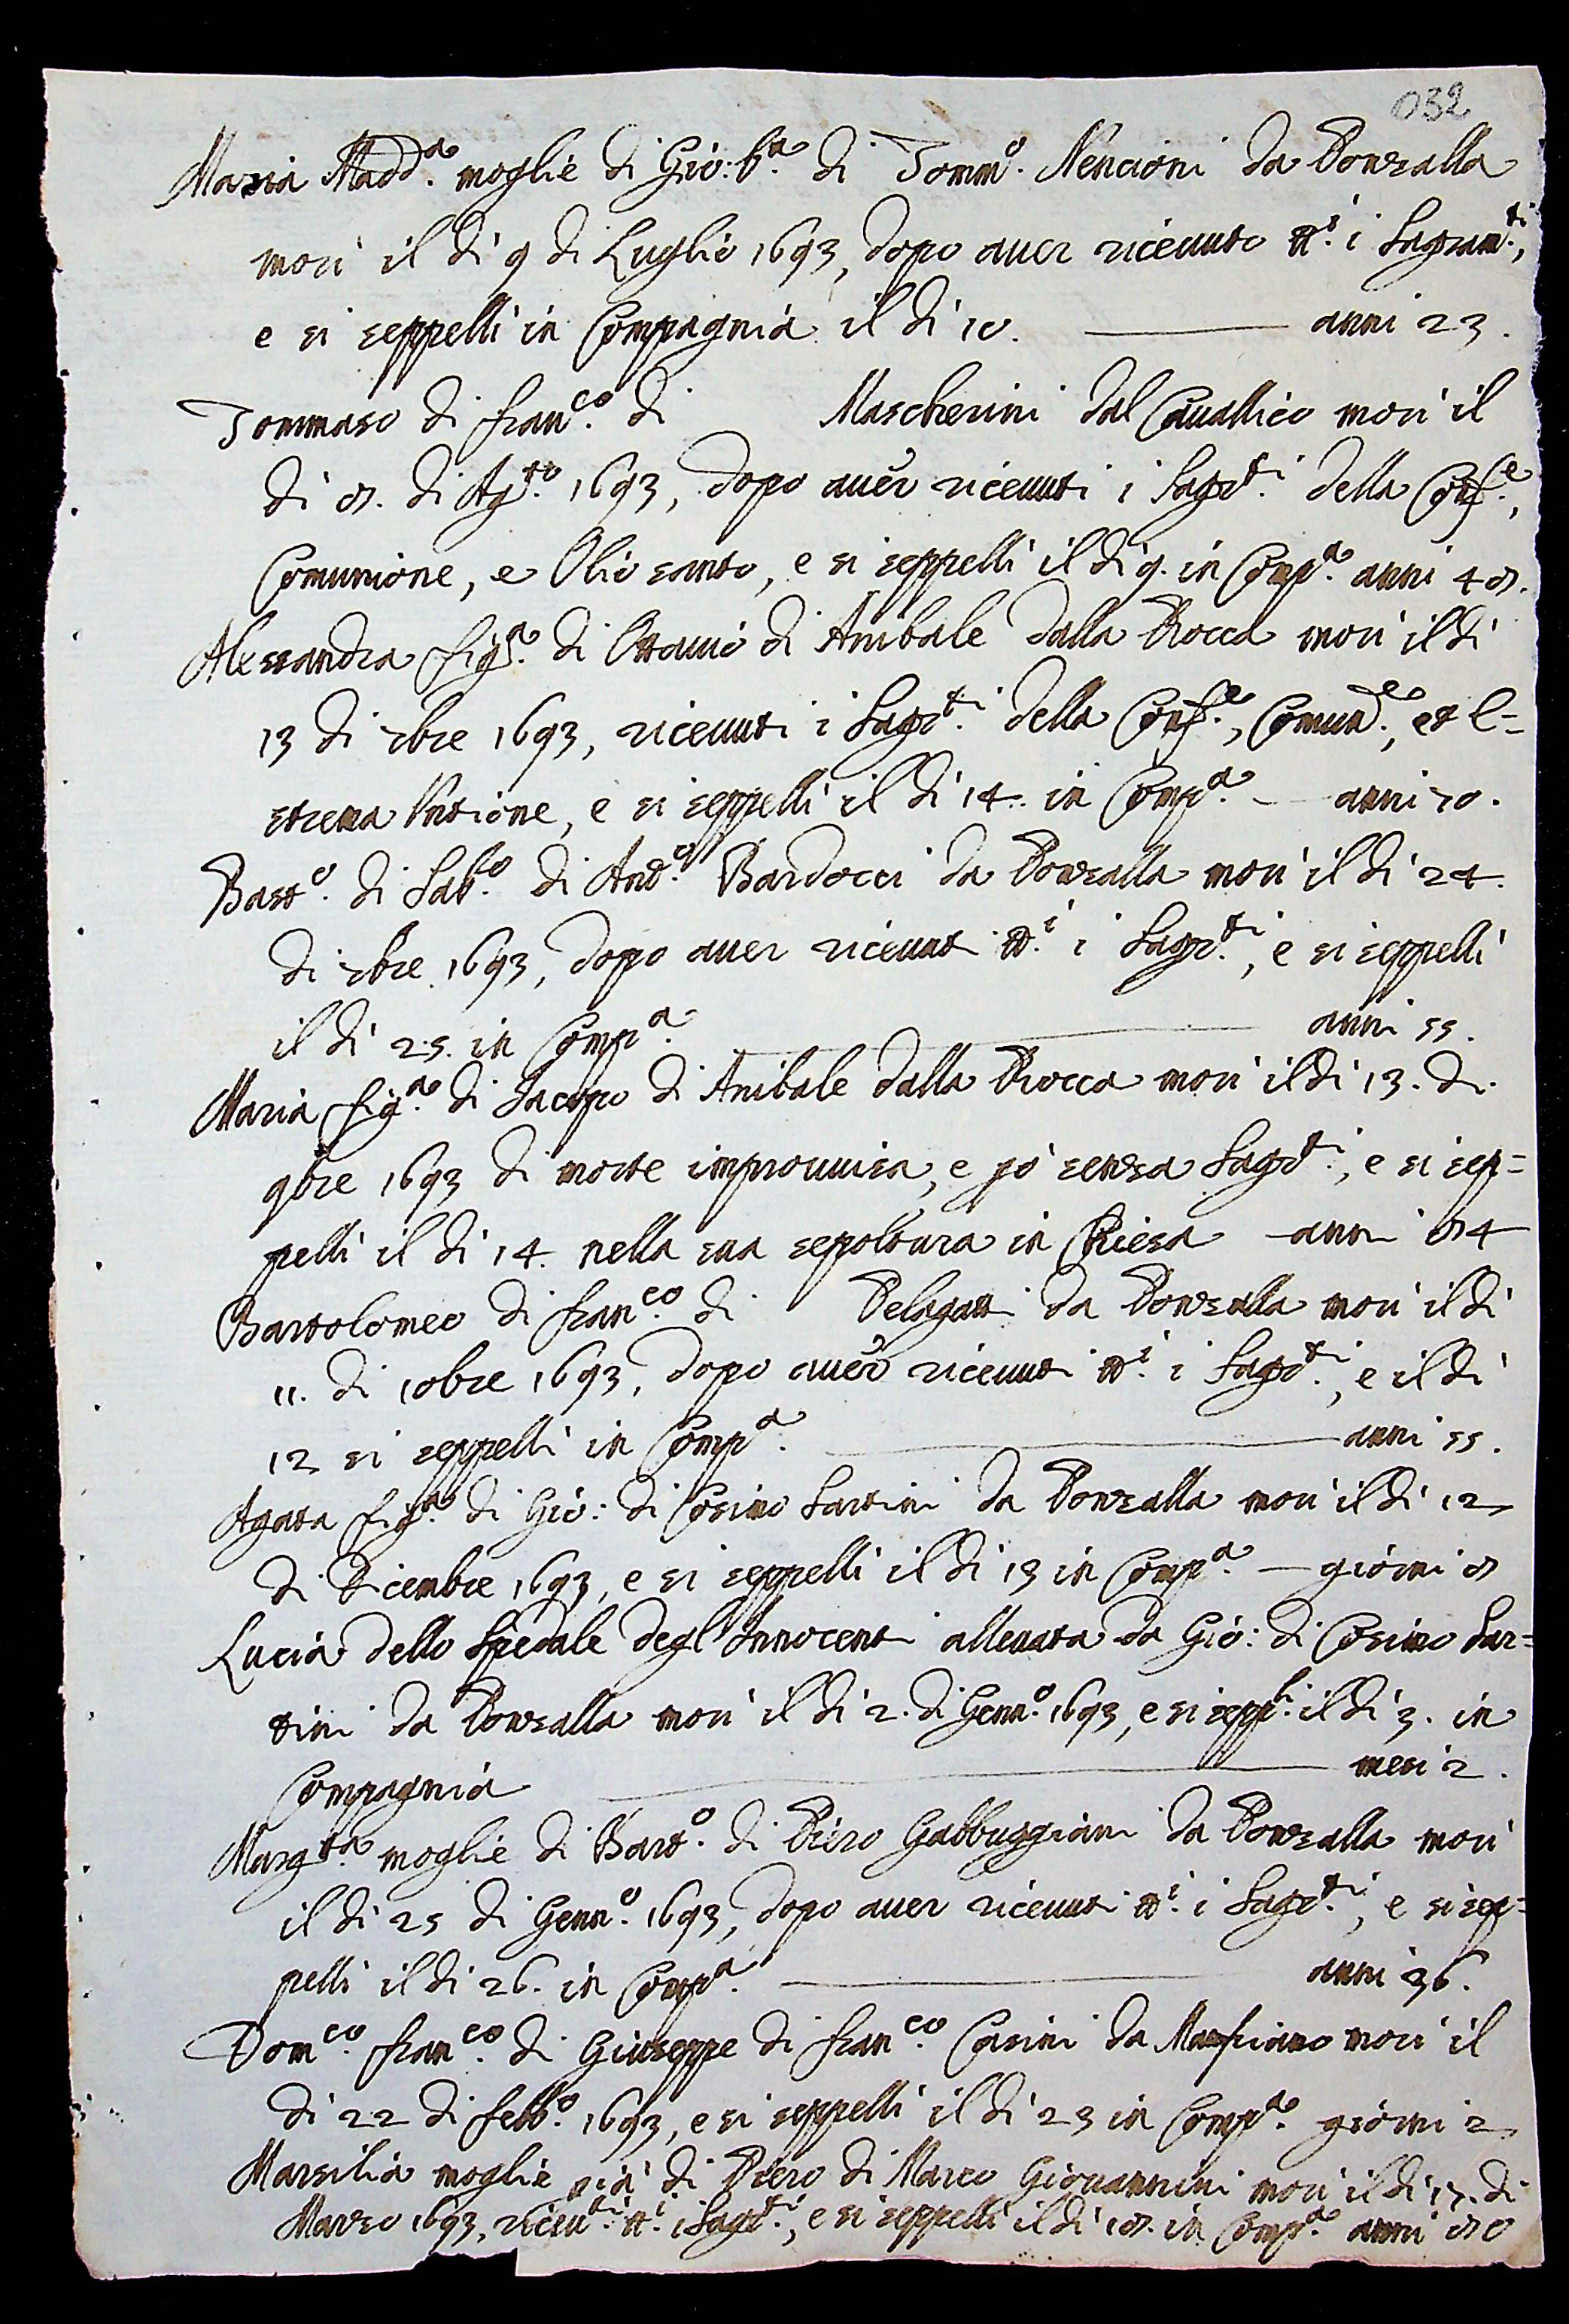 032
Maria Madd.a moglie di Gio: b.a di Tomm.o Nencioni da Bonzalla
morì il dì 9 di Luglio 1693, dopo aver riceuuto tt.i i Sagram.ti,
e si seppellì in Compagnia il dì 10. anni 23.
Tommaso di fran.co di Mascherini dal Cauallico morì il
dì 8. di Ag.to 1693, dopo auer riceuuti i Sagr.ti della Conf.e,
Comunione, e Olio santo, e si seppellì il dì 9. in Comp.a anni 48.
Alessandra fig.a di Ottauio di Anibale dalla Rocca morì il dì
13 di 7bre 1693, riceuuti i Sagr.ti della Conf.e, Comun.e, et E=
strema Untione, e si seppellì il dì 14. in Comp.a anni 70.
Bast.o di Sab.o di And.a Bardocci da Bonzalla morì il dì 24.
di 7bre 1693, dopo auer riceuuti tt.i i Sagr.ti, e si seppellì
il dì 25. in Comp.a anni 55.
Maria fig.a di Jacopo di Anibale dalla Rocca morì il dì 13. di
9bre 1693 di morte improuuisa, e pò senza Sagr.ti, e si sep=
pellì il dì 14. nella sua sepoltura in Chiesa anni 84
Bartolomeo di fran.co di Pelagatti da Bonzalla morì il dì
11. di 10bre 1693, dopo auer riceuuti tt.i i Sagr.ti, e il dì
12 si seppellì in Comp.a anni 55.
Agata fig.a di Gio: di Cosimo Sartini da Bonzalla morì il dì 12
di Dicembre 1693, e si seppellì il dì 13 in Comp.a giorni 8
Lucia dello Spedale degl'Innocenti alleuata da Gio: di Cosimo Sar=
tini da Bonzalla morì il dì 2. di Genn.o 1693, e si sepp.lì il dì 3. in
Compagnia mesi 2.
Marg.ta moglie di Bart.o di Piero Gabbuggiani da Bonzalla morì
il dì 25 di Genn.o 1693, dopo auer riceuuti tt.i i Sagr.ti, e si sep=
pellì il dì 26. in Comp.a anni 36.
Dom.co fran.co di Giuseppe di fran.co Casini da Marciano morì il
dì 22 di febb.o 1693, e si seppellì il dì 23 in Comp.a giorni 2
Marsilia moglie già di Piero di Marco Giouannini morì il dì 17. di
Marzo 1693, riceu.ti tt.i i Sagr.ti, e si seppellì il dì 18. in Comp.a anni 80